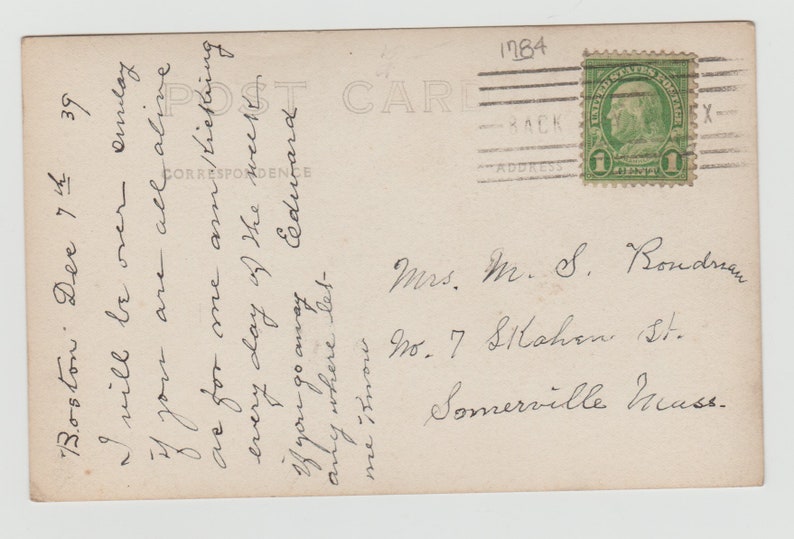 1784
UNITED STATES POSTAGE
1 1
POST CARD
BACK
X
CORRESPONDENCE
ADDRESS
Boston Dec 7th 39
I will be over sunday
if you are all alive
as for me am Kicking
every day of the week
Edward
If you go away
any where let-
me Know
Mrs. M. S. Boudreau
No. 7 SKahen St.
Somerville Mass.